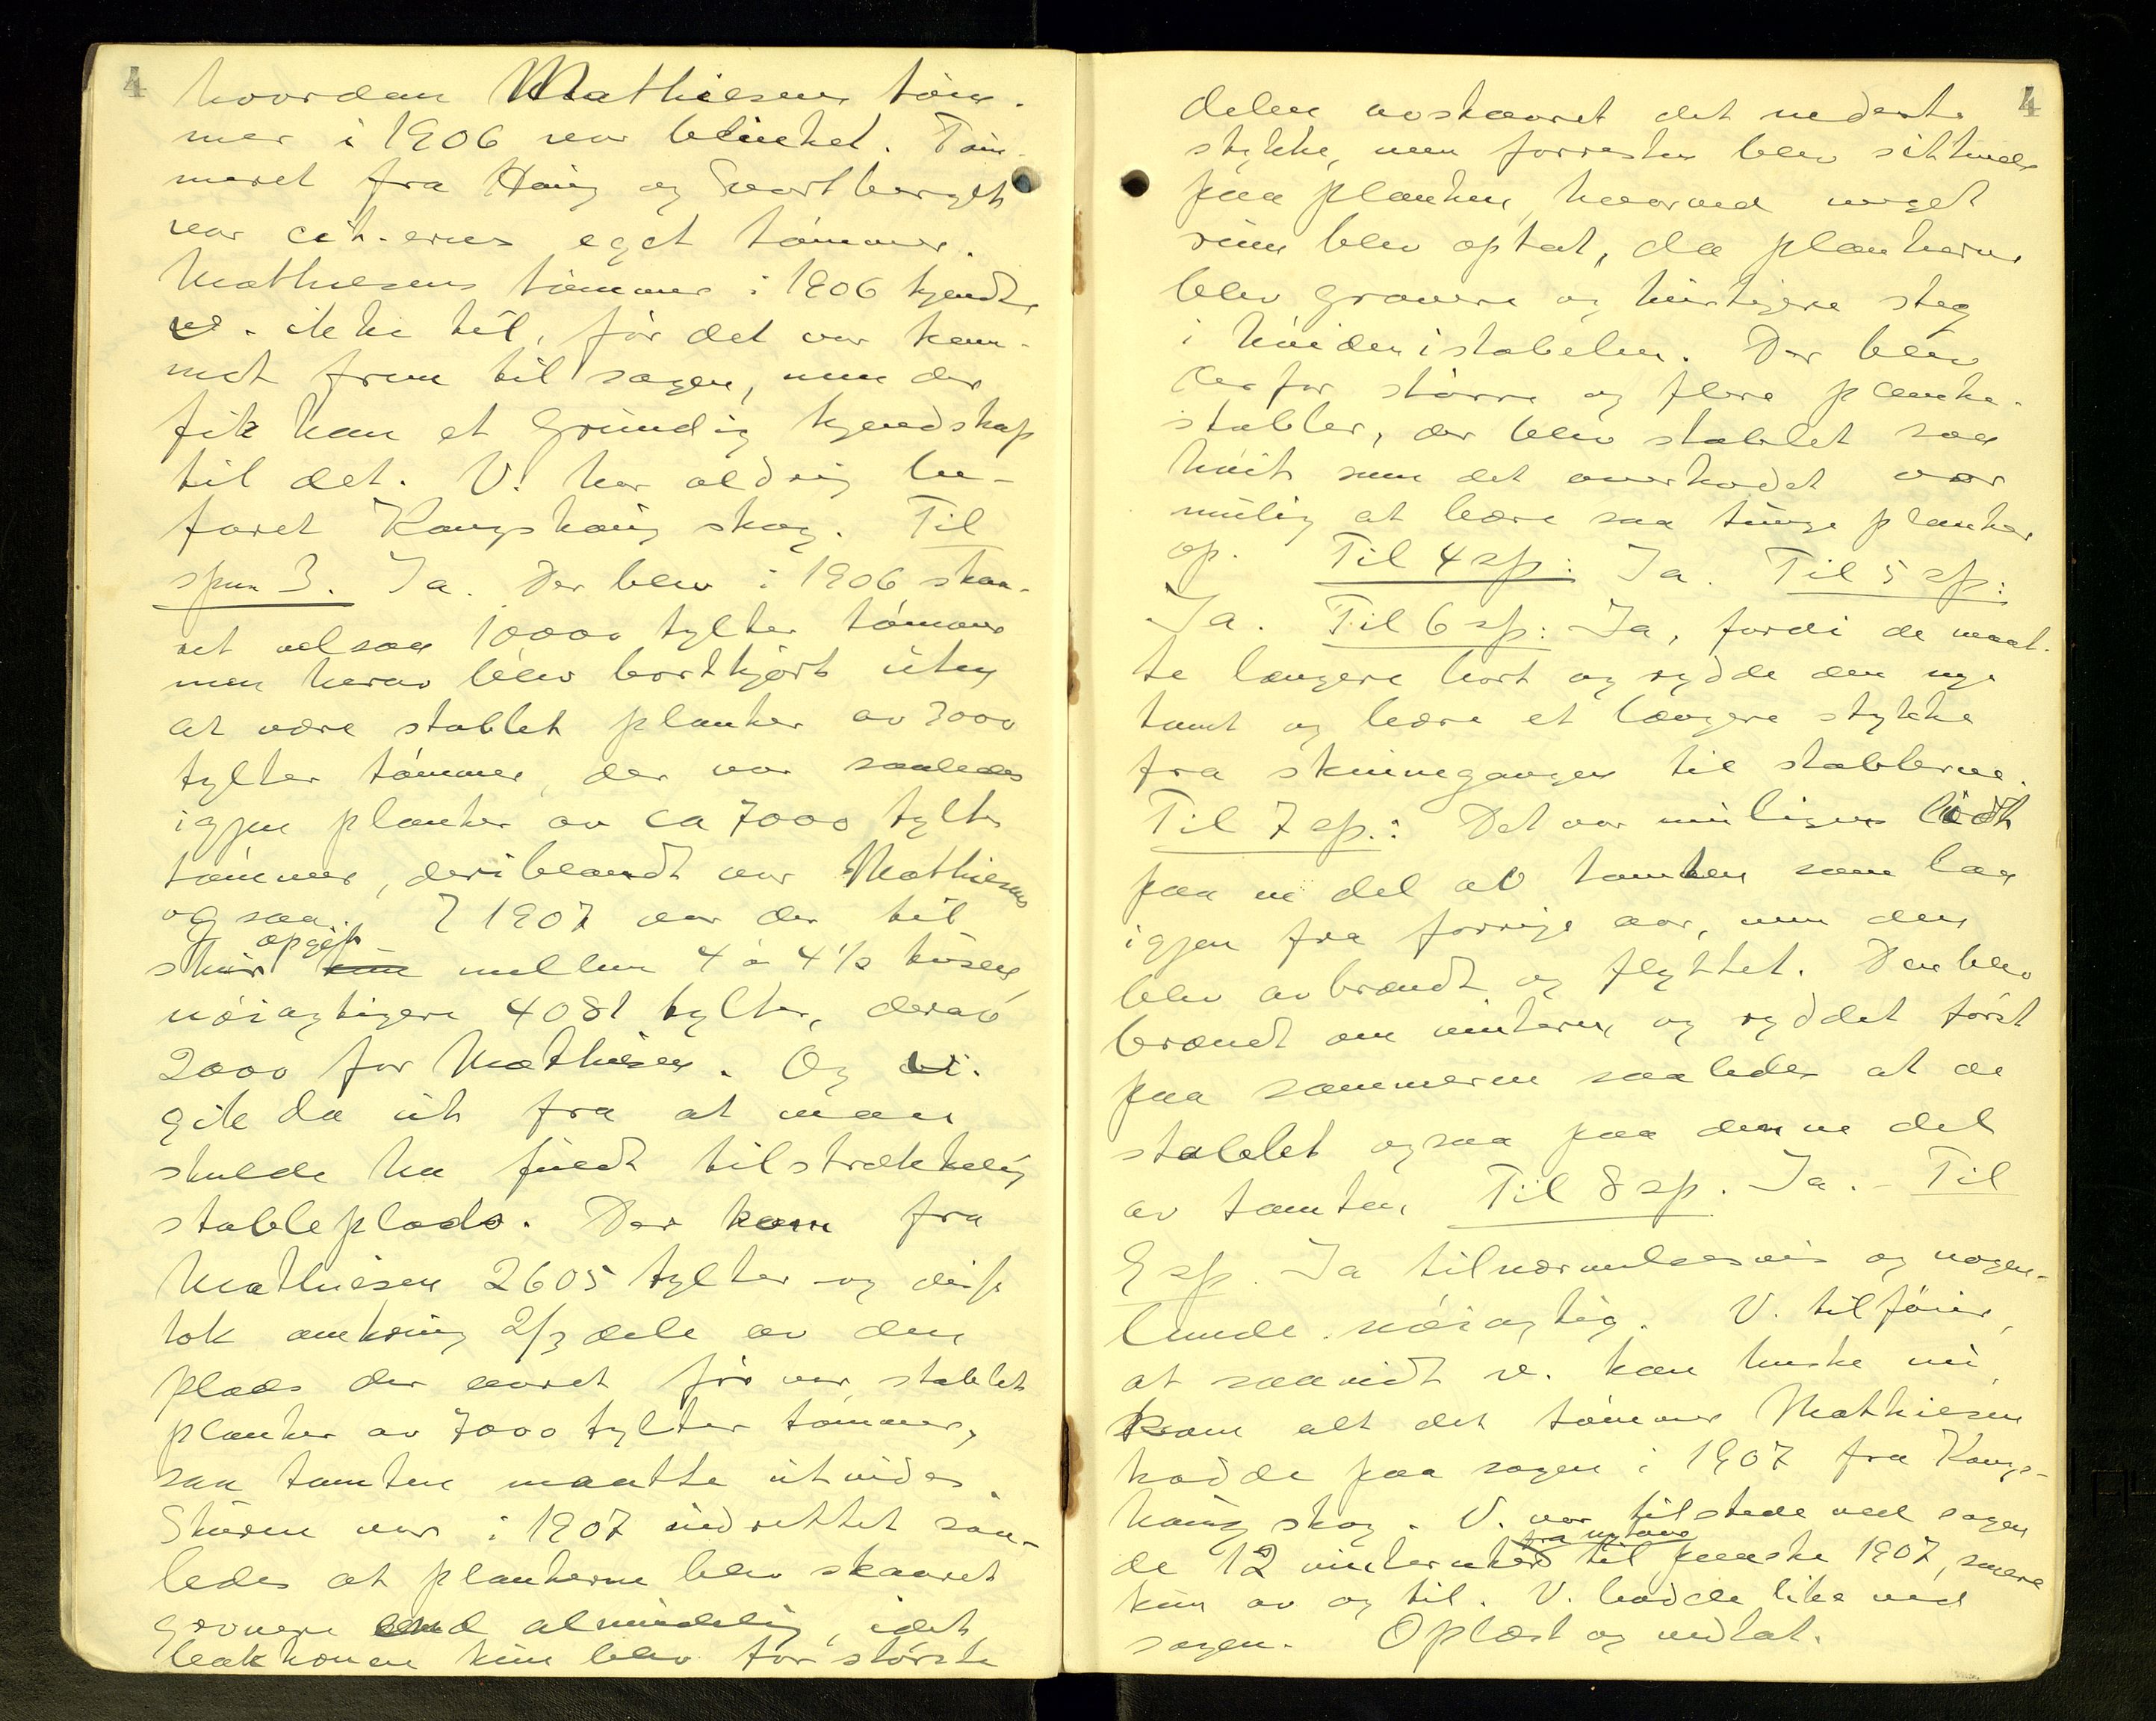 4
hvordan Mathiesens töm-
mer i 1906 var blinket. Töm-
meret fra Haug og Svartberget
var cit-ernes eget tömmer.
Mathiesens tömmer i 1906 kjendte
v. ikke til, för det var kom-
met frem til sagen, men der
fik han et grundig kjendskap
til det. V. har aldrig be-
faret Kongshaug skog. Til
spm 3. Ja. Der blev i 1906 skaa-
ret vel saa 10000 tylter tömmer
men herav blev bortkjört uten
at være stablet planker av 3000
tylter tömmer, der var saaledes
igjen planker av ca 7000 tylter
tömmer, deriblandt var Mathiesens
ogsaa. I 1907 var der til
skur opgit mellem 4 à 4½ tusen,
nöiagtigere 4081 tylter, derav
2000 for Mathiesen. Og vi.
gik da ut fra at man
skulde ha fuldt tilstrækkelig
stableplads. Der kom fra
Mathiesen 2605 tylter og disse
tok omkring 2/3 dele av den
plads der aaret för var stablet
planker av 7000 tylter tömmer,
saa tomten maatte utvides.
Skuren var i 1907 indrettet saa-
ledes at plankerne blev skaaret
grovere end almindelig, idet
bakhonen kun blev for störste
4
delen avskaaret det nederste
stykke, men forresten blev sittende
paa planken, hvorved meget
rum blev optat, da plankerne
blev grovere og hurtigere steg
i höiden i stabelen. Der blev
derfor större og flere planke-
stabler, der blev stablet saa
höit som det overhodet var
mulig at bære saa tunge planker
op. Til 4 sp: Ja. Til 5 sp:
Ja. Til 6 sp: Ja, fordi de maat-
te længere bort og rydde den nye
tomt og bære et længere stykke
fra skinnegangen til stablerne.
Til 7 sp.: Det var muligens lidt
paa en del av tomten som laa
igjen fra forrige aar, men den
blev avbrændt og flyttet. Den blev
brændt om vinteren og ryddet först
paa sommeren saaledes at de
stablet ogsaa paa denne del
av tomten. Til 8 sp. Ja. – Til
9 sp. Ja tilnærmelsesvis og nogen-
lunde nöiagtig. V. tilföier,
at saavidt v. kan huske nu
kom alt det tömmer Mathiesen
hadde paa sagen i 1907 fra Kongs-
haug skog. V. var tilstede ved sagen
fra nytaar
de 12 til paaske 1907, senere
kun av og til. V. bodde like ved
sagen. Oplæst og vedtat.